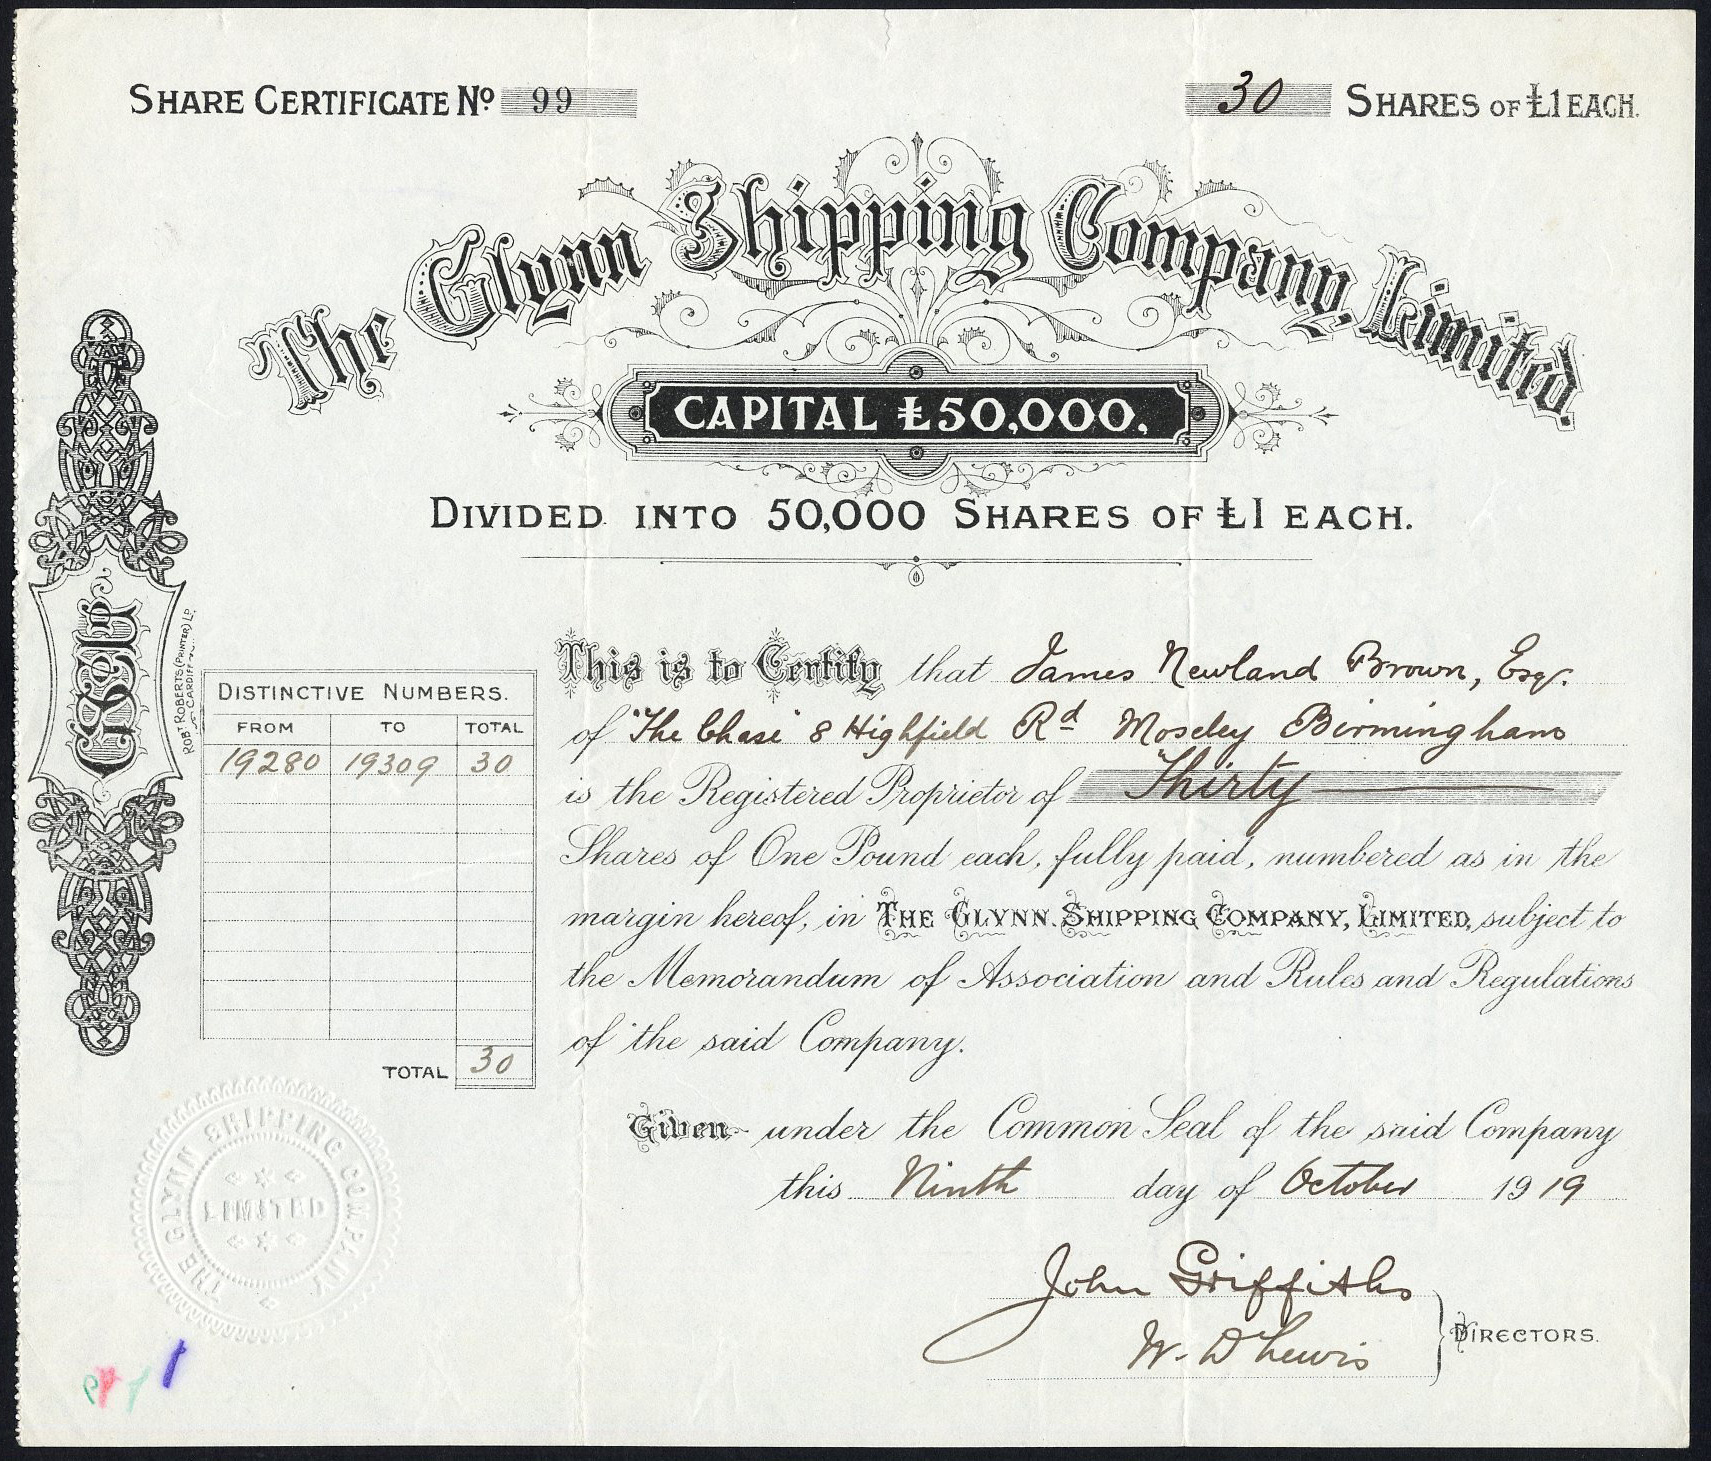 SHARE CERTIFICATE No 99
30 SHARES OF £1 EACH.
The Glynn Shipping Company, Limited.
CAPITAL £50,000.
DIVIDED INTO 50,000 SHARES OF £1 EACH.
ROBT ROBERTS (PRINTER) LD.
CARDIFF
DISTINCTIVE NUMBERS.
FROM TO TOTAL
19280 19309 30
TOTAL 30
This is to Certify that James Newland Brown, Esq.
of "The Chase" 8 Highfield Rd Moseley Birmingham
is the Registered Proprietor of Thirty
Shares of One Pound each, fully paid, numbered as in the
margin hereof, in THE GLYNN SHIPPING COMPANY, LIMITED, subject to
the Memorandum of Association and Rules and Regulations
of the said Company.
Given under the Common Seal of the said Company
this Ninth day of October 1919
John Griffiths
W. D Lewis
DIRECTORS.
THE GLYNN SHIPPING COMPANY
LIMITED